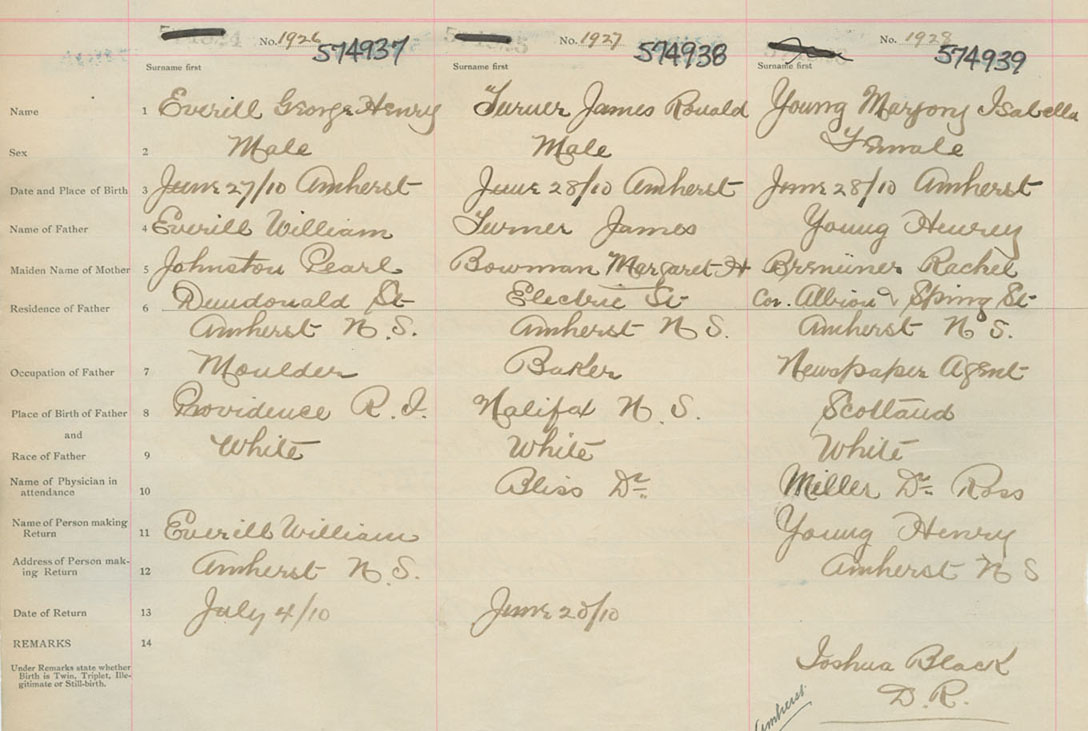 No. 1926 574937 No. 1927 574938 No. 1928 574939
Surname first Surname first Surname first
Name 1 Everill George Henry Turner James Ronald Young Marjory Isabella
Sex 2 Male Male Female
Date and Place of Birth 3 June 27/10 Amherst June 28/10 Amherst June 28/10 Amherst
Name of Father 4 Everill William Turner James Young Henrey
Maiden Name of Mother 5 Johnston Pearl Bowman Margaret H Rachel
Residence of Father 6 Dundonald St Electric St Cor. Albion & Sping St
Amherst N.S. Amherst N S. Amherst N S.
Occupation of Father 7 Moulder Baker Newspaper Agent
Place of Birth of Father 8 Providence R.I. Halifax N.S. Scotland
and
Race of Father 9 White White White
Name of Physician in
attendance 10 Bliss Dr Miller Dr Ross
Name of Person making
Return 11 Everill William Young Henry
Address of Person mak-
ing Return 12 Amherst N.S. Amherst N S
Date of Return 13 July 4/10 June
REMARKS 14
Under Remarks state whether
Birth is Twin, Triplet, Ille-
gitimate or Still-birth.
Joshua Black
D.R.
Amherst